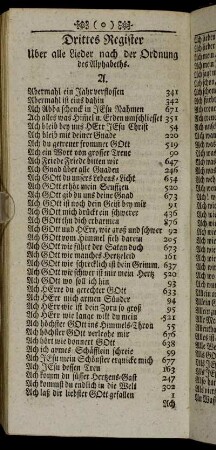 ( o )
Drittes Register
Uber alle Lieder nach der Ordnung
des Alphabeths.
A.
Abermahl ein Jahr verflossen 341
Abermahl ist eins dahin 342
Ach Abba schencf in JEsu Nahmen 671
Ach alles was Himel u. Erden umschliesset 351
Ach bleib bey uns HErr JEsu Christ 54
Ach bleib mit deiner Gnade 220
Ach du getreuer frommer GOtt 519
Ach ein Wort von grosser Treue 90
Ach Friede Friede bitten wir 647
Ach Gnad über alle Gnaden 246
Ach GOtt du unsers Lebens Licht 654
Ach GOtt erhör mein Seufzen 520
Ach GOtt gib du uns deine Gnad 673
Ach GOtt ist noch dein Geist bey mir 91
Ach GOtt mich drückt ein schwerer 435
Ach GOtt thu dich erbarmen 676
Ach GOtt und HErr, wie groß und schwer 92
Ach GOtt vom Himmel sieh darein 205
Ach GOtt wie führet der Satan doch 673
Ach GOtt wie manches Hertzeleid 161
Ach GOtt wie schrecklich ist dein Grimm. 637
Ach GOtt wie schwer ist mir mein Hertz 520
Ach GOtt wo soll ich hin 93
Ach HErre du gerechter GOtt 633
Ach HErr mich armen Sünder 94
Ach HErr wie ist dein Zorn so groß 95
Ach HErr wie lange wilt du mein 521
Ach höchster GOtt ins Himmels-Thron 55
Ach höchster GOtt verleyhe mir 676
Ach hört wie donnert GOtt 638
Ach ich armes Schäfflein schreie 59
Ach JEsu mein Schönster erquicke mich 677
Ach JEsu dessen Treu 163
Ach komm du süsser Hertzens-Gast 247
Ach kommst du endlich in die Welt 302
Ach laß dir liebster GOtt gefallen 1
Ach